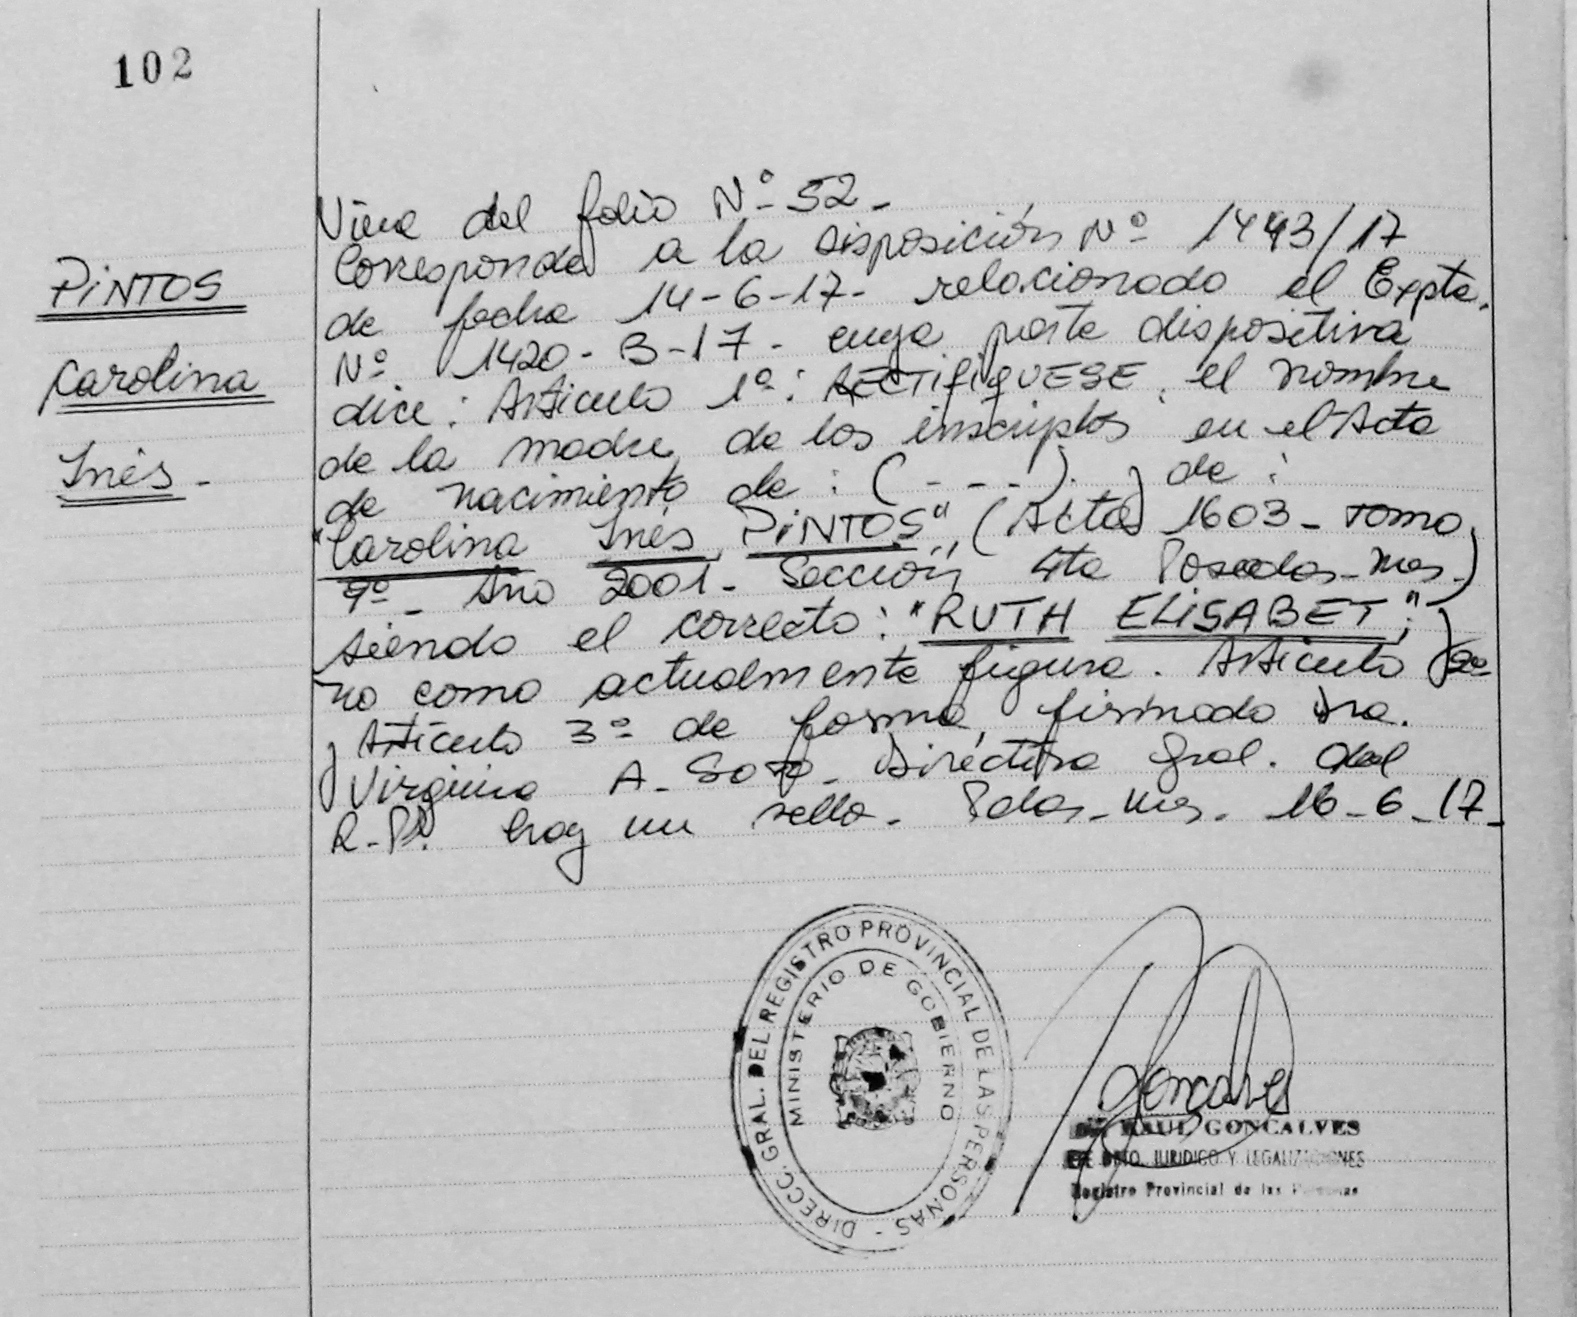 102
PiNTOS
Carolina
Inés.-
Viene del folio Nº 52.-
Corresponde a la disposición Nº 1443/17
de fecha 14-6-17- relacionado el Expte.
Nº 1420-B-17- cuya parte dispositiva
dice: Artículo 1º: RECTIFIQUESE, el nombre
de la madre de los inscriptos en el Acta
de nacimiento de: (----) y de:
"Carolina Inés PiNTOS", (Acta 1603- Tomo
9º- Año 2001- Sección 4ta Posadas-Mes.)
siendo el correcto: "RUTH ELiSABET"; y
no como actualmente figura. Artículo 2º
y Artículo 3º de forma, firmado Dra.
Virginia A. Soto. Directora Gral. del
R.P.P. hay un sello. Pdas-Mes. 16-6-17-
DIRECC. GRAL. DEL REGISTRO PROVINCIAL DE LAS PERSONAS -
MINISTERIO DE GOBIERNO
Goncalves
RAUL GONCALVES
DPTO. JURIDICO Y LEGALIZACIONES
Registro Provincial de las Personas